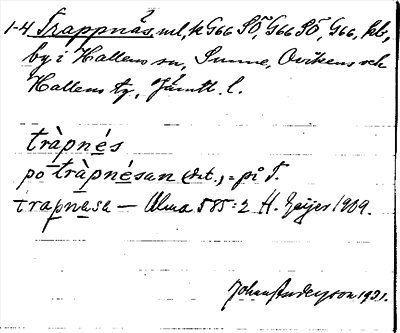 1-4 Trappnäs, ml, k G66 SÖ, G66 SÖ, G66, kb,
by i Hallens sn, Sunne, Ovikens och
Hallens tg, Jämtl. l.
tràpnés
pò tràpnésan (dat.) = på T.
trapnasa — Alma 585:2 H. Geijer 1909.
Johan Anderson 1921.